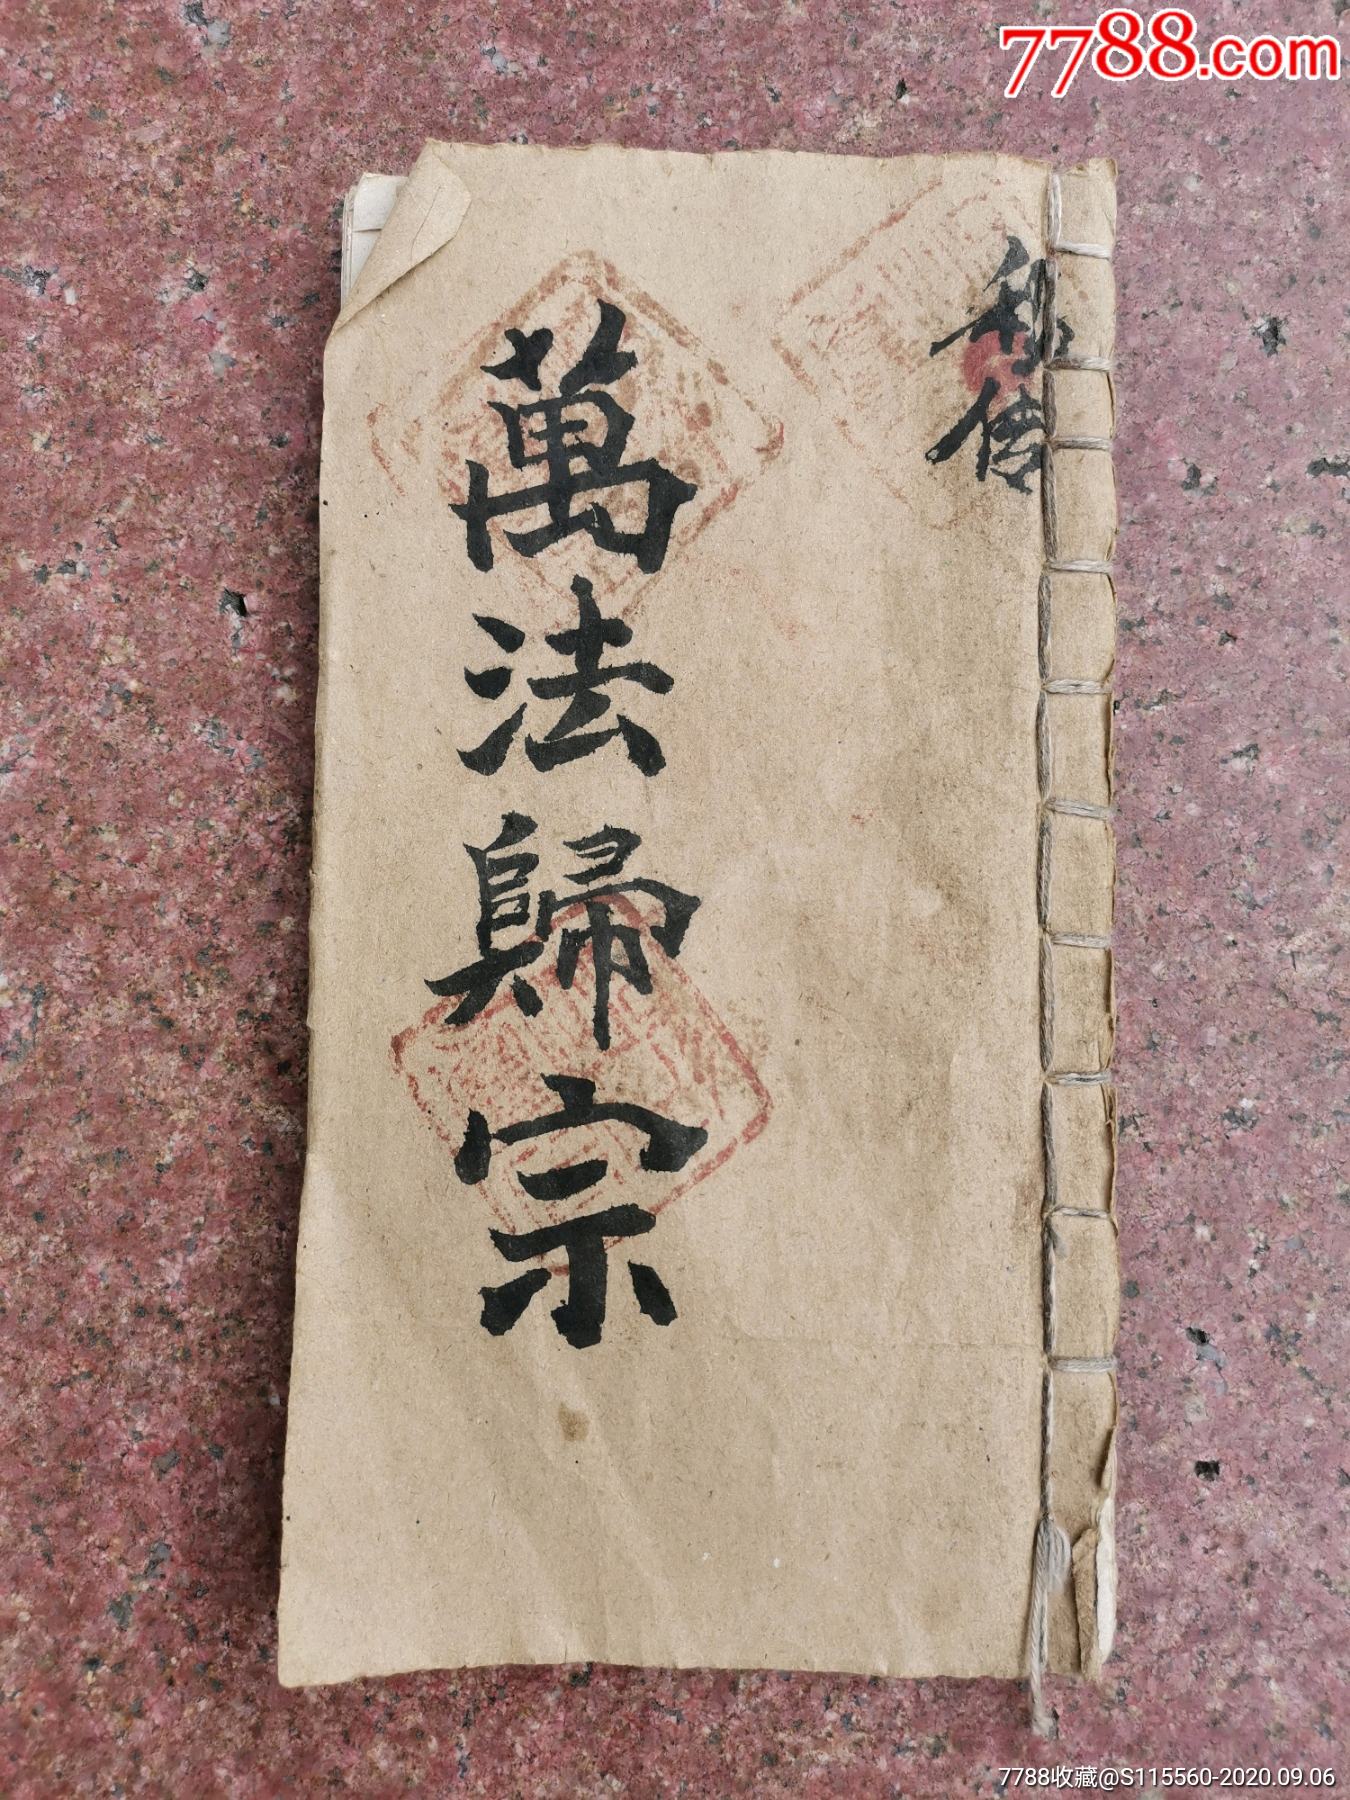 7788.com
秘传
萬法歸宗
7788收藏@S115560-2020.09.06